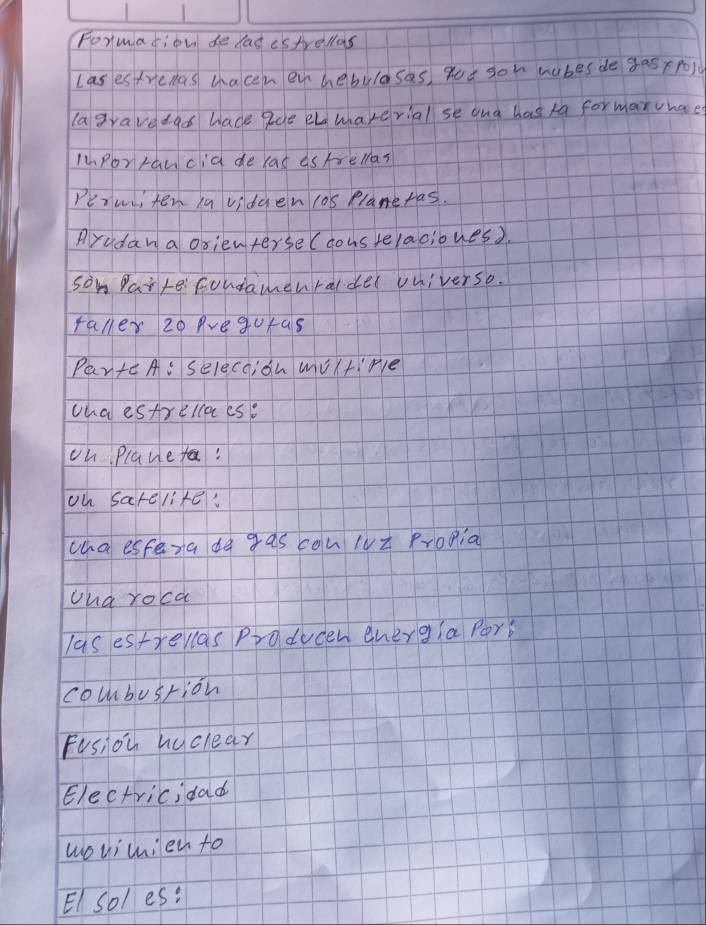 Formación de las estrellas
Las estrellas nacen en nebulosas, que son nubes de gas y pol
la gravedad hace que el material se una hasta formar una es
Importancia de las estrellas
Permiten la vida en los Planetas.
Ayudan a orienterse (constelaciones).
son Parte fundamental del universo.
taller 20 Pregutas
Parte A: selección múltiple
una estrella es:
un Planeta:
un satelite:
una esfera de gas con luz Propia
una roca
las estrellas Producen energia Por:
combustión
Fusión nuclear
Electricidad
movimiento
El sol es: